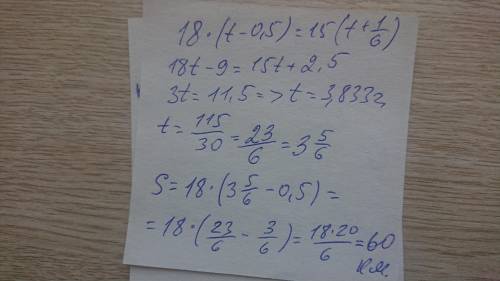 18·(t-0,5)=15(t+1/6)
18t-9=15t+2.5
3t=11,5=>t=3,833г,
t=115/30=23/6=3 5/6
S=18·(3 5/6-0,5)=
=18·(23/6-3/6)=18·20/6=60
км.